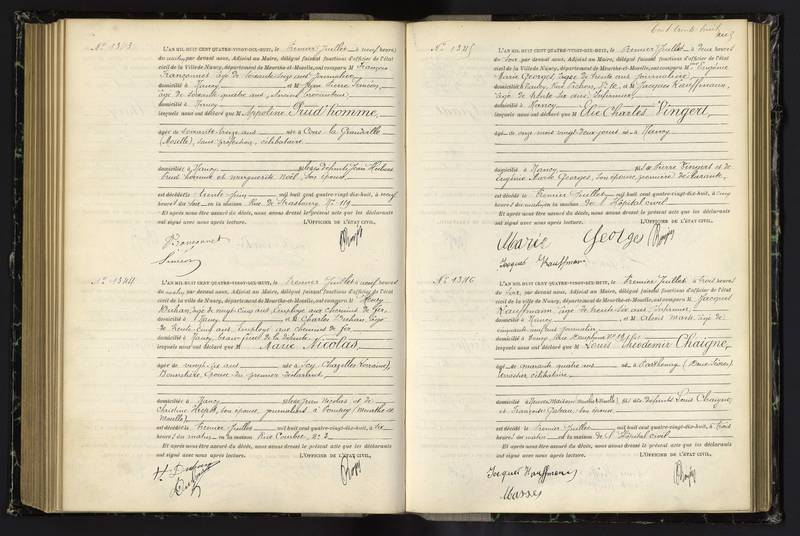 Nº 1343
L'AN MIL HUIT CENT QUATRE-VINGT-DIX-HUIT, le premier Juillet à neuf heures
du matin, par devant nous, Adjoint au Maire, délégué faisant fonctions d'officier de l'état
civil de la Ville de Nancy, département de Meurthe-et-Moselle, ont comparu M François
âgé de soixante ans journalier
domicilié à Nancy et M Jean Pierre Simion,
âgé de soixante quatre ans,
domicilié à Nancy
lesquels nous ont déclaré que M Appoline Prud'homme,
âgée de soixante treize ans née à Cons la Grandville
(Moselle), sans profession, célibataire
domiciliée à Nancy défunts Jean
Prud'homme et Marguerite Noël, son épouse
est décédée le trente juin mil huit cent quatre-vingt-dix-huit, à neuf
heures du soir en la maison Rue de Strasbourg Nº 119
Et après nous être assuré du décès, nous avons dressé le présent acte que les déclarants
ont signé avec nous après lecture. L'OFFICIER DE L'ÉTAT CIVIL,
Nº 1344
L'AN MIL HUIT CENT QUATRE-VINGT-DIX-HUIT, le premier Juillet à neuf heures
du matin, par devant nous, Adjoint au Maire, délégué faisant fonctions d'officier de l'état
civil de la ville de Nancy, département de Meurthe-et-Moselle, ont comparu M Henry
âgé de vingt cinq ans, Employé aux chemins de fer,
domicilié à Nancy et M Charles âgé
de trente cinq ans Employé aux chemins de fer,
domicilié à Nancy, beau-frère de la défunte
lesquels nous ont déclaré que M Marie Nicolas,
âgée de vingt six ans née à Scy-Chazelles (Lorraine),
épouse du premier déclarant
domiciliée à Nancy Jean Nicolas et de
Christine son épouse, journaliers à Pompey (Meurthe et
Moselle)
est décédée le premier Juillet mil huit cent quatre-vingt-dix-huit, à six
heures du matin en la maison Rue Nº 3
Et après nous être assuré du décès, nous avons dressé le présent acte que les déclarants
ont signé avec nous après lecture. L'OFFICIER DE L'ÉTAT CIVIL,
cent trente huit
Nº 1345
L'AN MIL HUIT CENT QUATRE-VINGT-DIX-HUIT, le premier Juillet à deux heures
du soir, par devant nous, Adjoint au Maire, délégué faisant fonctions d'officier de l'état
civil de la Ville de Nancy, département de Meurthe-et-Moselle, ont comparu M Eugénie
Marie Georges, âgée de trente ans journalière
domiciliée à Nancy, Rue Nº 10, et M Jacques Kauffmann,
âgé de trente six ans, Infirmier
domicilié à Nancy
lesquels nous ont déclaré que M Elie Charles Vingert,
âgé de onze mois vingt deux jours né à Nancy
domicilié à Nancy fils de Pierre Vingert et de
Eugénie Marie Georges, son épouse, première déclarante,
est décédé le premier Juillet mil huit cent quatre-vingt-dix-huit, à cinq
heures du matin en la maison de l'Hôpital civil
Et après nous être assuré du décès, nous avons dressé le présent acte que les déclarants
ont signé avec nous après lecture. L'OFFICIER DE L'ÉTAT CIVIL,
Marie Georges
Jacques Kauffmann
Nº 1346
L'AN MIL HUIT CENT QUATRE-VINGT-DIX-HUIT, le premier Juillet à trois heures
du soir, par devant nous, Adjoint au Maire, délégué faisant fonctions d'officier de l'état
civil de la ville de Nancy, département de Meurthe-et-Moselle, ont comparu M Jacques
Kauffmann, âgé de trente six ans Infirmier,
domicilié à Nancy et M Alexis âgé de
cinquante ans journalier
domicilié à Nancy
lesquels nous ont déclaré que M Louis Theodemir Chaigne,
âgé de quarante quatre ans né à Parthenay (Deux-Sèvres)
terrassier célibataire
domicilié à fils des défunts Louis Chaigne
et Françoise son épouse
est décédé le premier Juillet mil huit cent quatre-vingt-dix-huit, à trois
heures du matin en la maison de l'Hôpital civil
Et après nous être assuré du décès, nous avons dressé le présent acte que les déclarants
ont signé avec nous après lecture. L'OFFICIER DE L'ÉTAT CIVIL,
Jacques Kauffmann